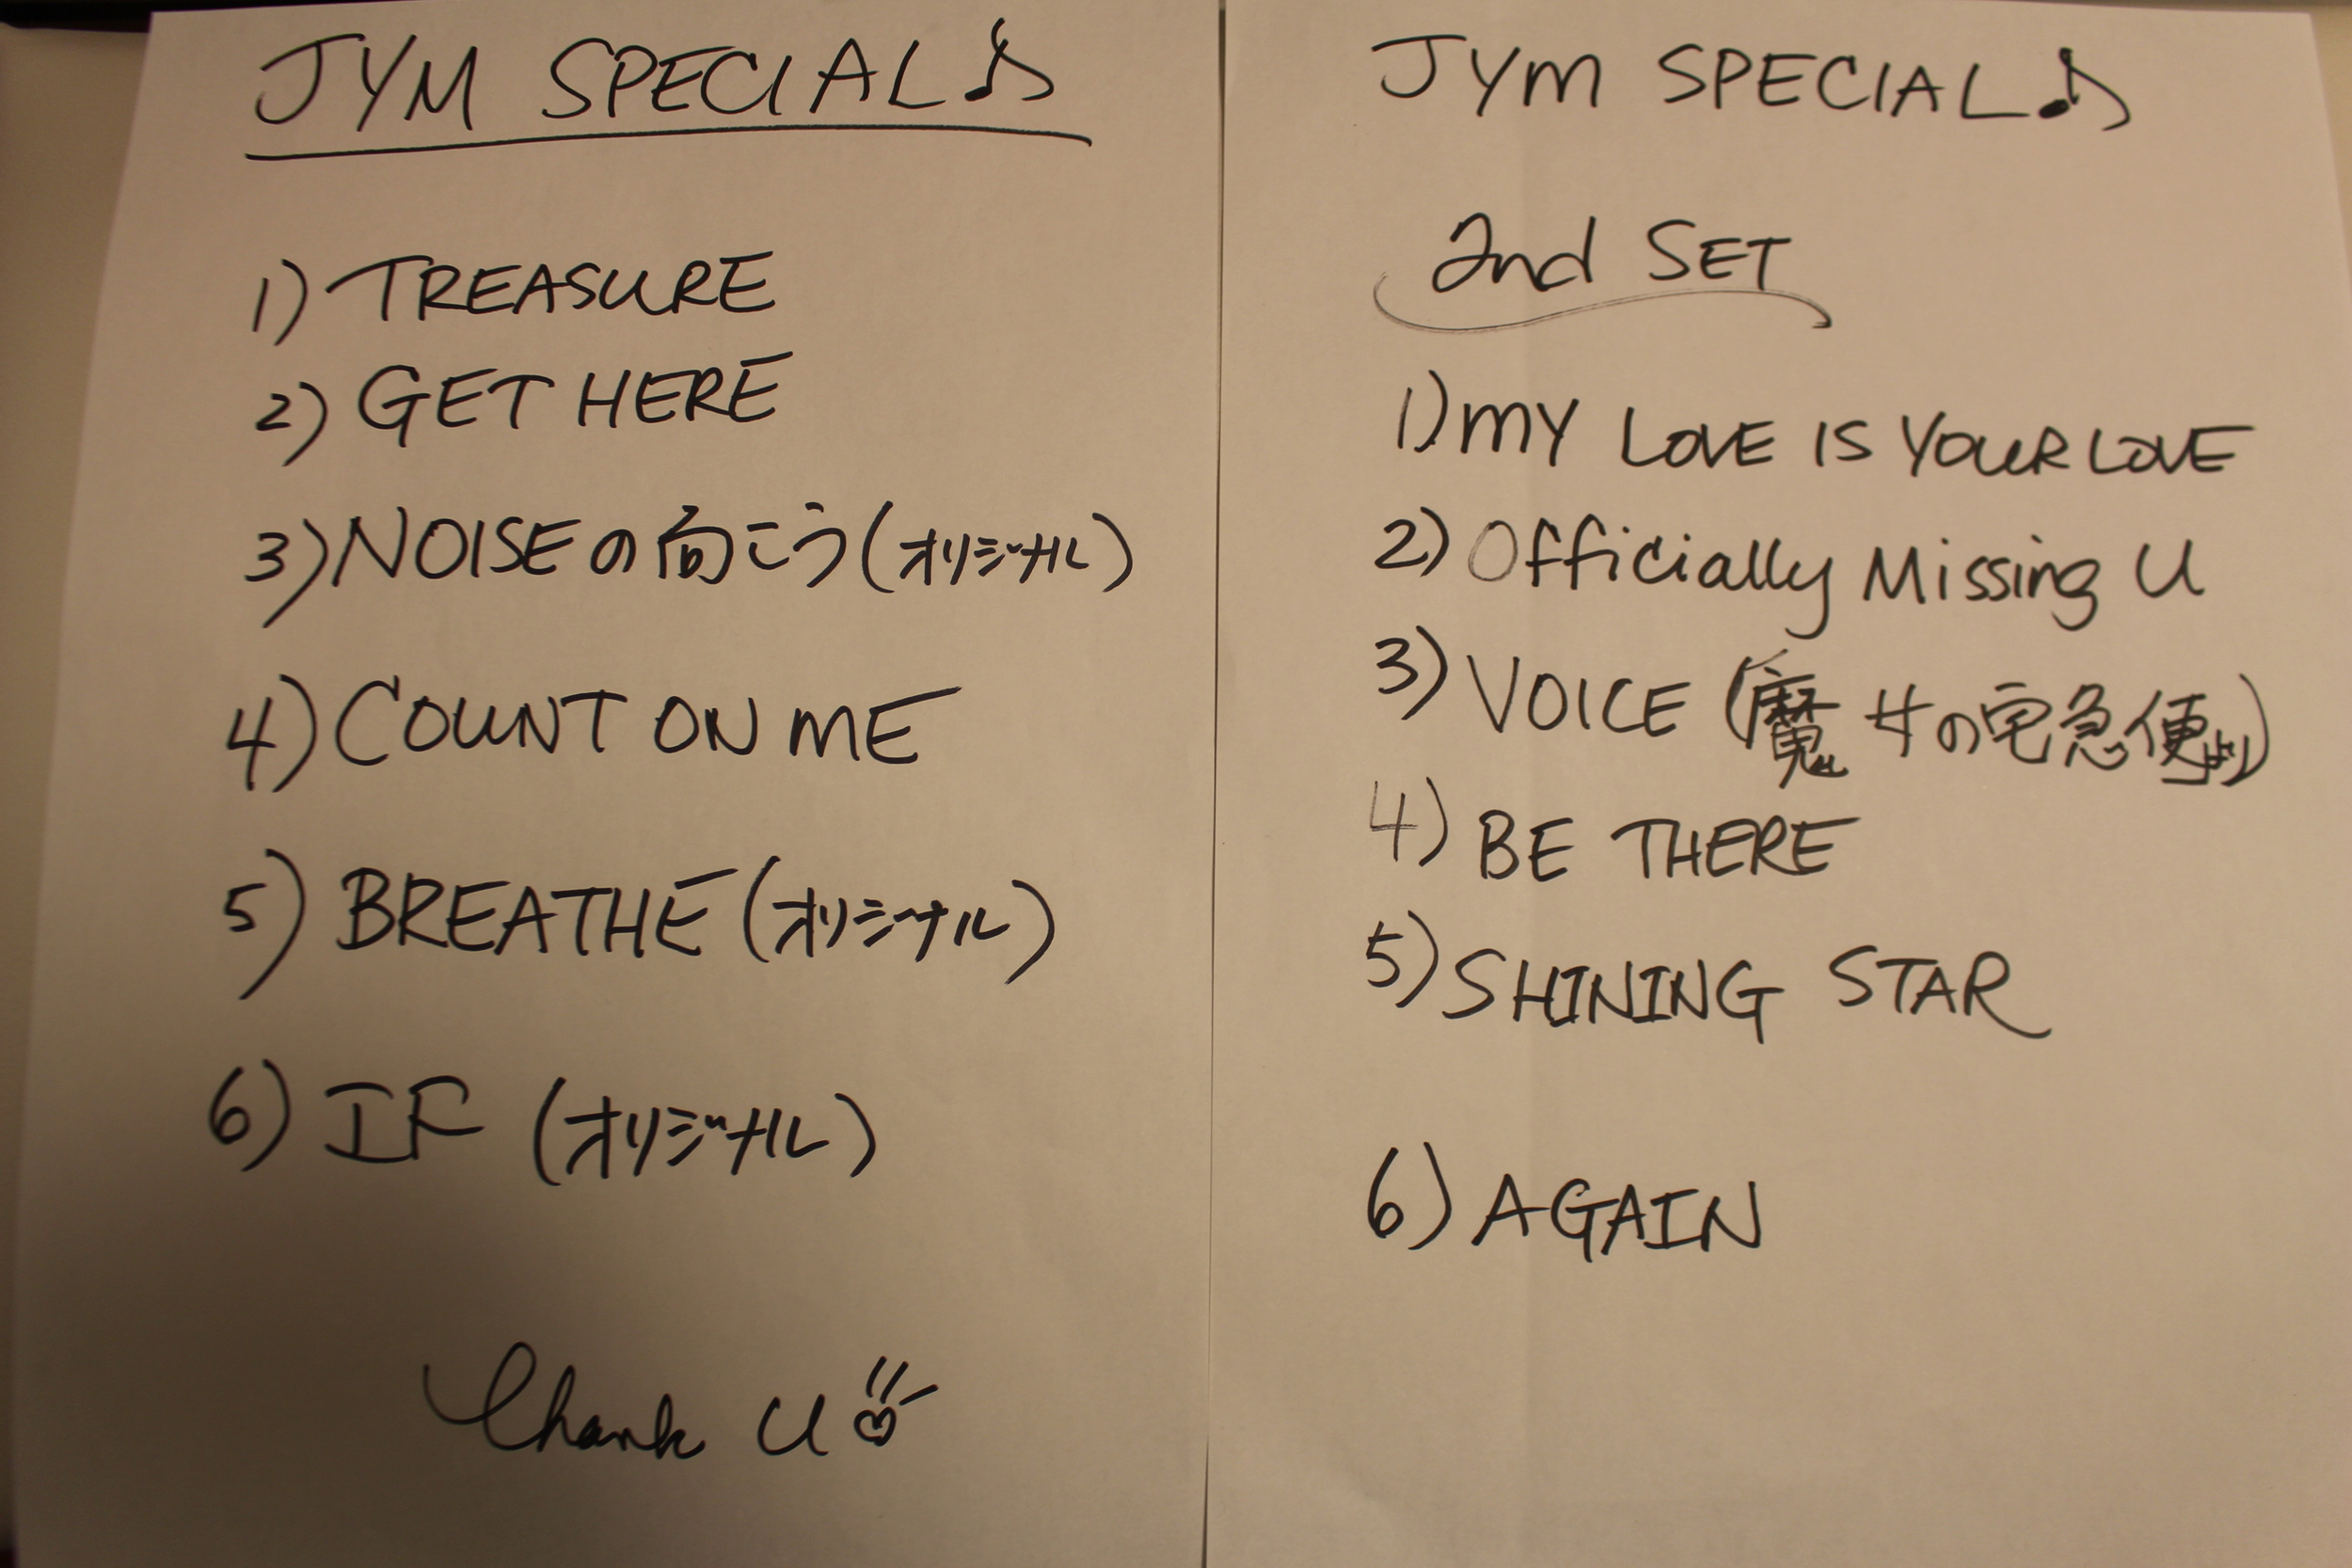 JYM SPECIAL♪
1) TREASURE
2) GET HERE
3) NOISEの向こう(オリジナル)
4) COUNT ON ME
5) BREATHE(オリジナル)
6) IF (オリジナル)
Thank U
JYM SPECIAL♪
2nd SET
1) MY LOVE IS YOUR LOVE
2) Officially Missing U
3) VOICE (魔女の宅急便より)
4) BE THERE
5) SHINING STAR
6) AGAIN